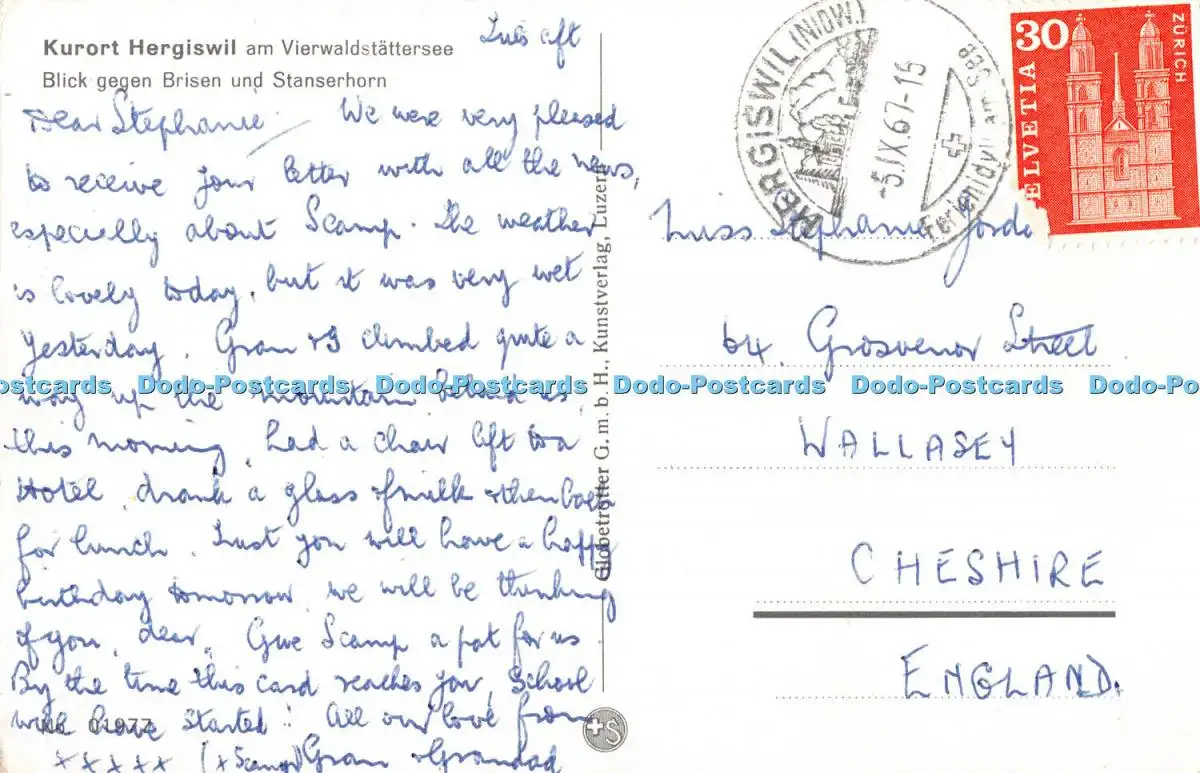 Kurort Hergiswil am Vierwaldstättersee
Blick gegen Brisen und Stanserhorn
Tues aft
Dear Stephanie / We were very pleased
to receive your letter with all the news,
especially about Scamp. The weather
is lovely today, but it was very wet
yesterday. Gran & I climbed quite a
way up the mountain behind us
this morning, had a chair lift to a
Hotel, drank a glass of milk & then back
for lunch. Trust you will have a happy
birthday tomorrow, we will be thinking
of you, dear. Give Scamp a pat for us
By the time this card reaches you, school
will have started! All our love from
x x x x x (x Scamp) Gran & Grandad
No. 01977
Globetrotter G.m.b.H., Kunstverlag, Luzern
+S
HERGISWIL (NIDW.)
-5.IX.67-15
Ferienidyll am See
30
HELVETIA
ZÜRICH
Miss Stephanie Jorda
64, Grosvenor Street
WALLASEY
CHESHIRE
ENGLAND.
Dodo-Postcards Dodo-Postcards Dodo-Postcards Dodo-Postcards Dodo-Postcards Dodo-Po